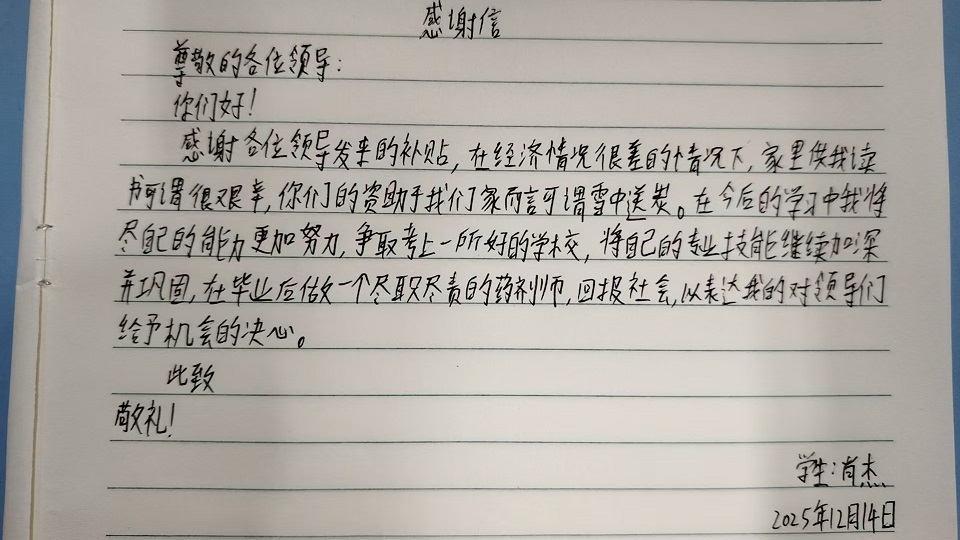 感谢信
尊敬的各位领导：
你们好！
感谢各位领导发来的补贴，在经济情况很差的情况下，家里供我读
书可谓很艰辛，你们的资助于我们家而言可谓雪中送炭。在今后的学习中我将
尽自己的能力更加努力，争取考上一所好的学校，将自己的专业技能继续加深
并巩固，在毕业后做一个尽职尽责的药剂师，回报社会，以表达我的对领导们
给予机会的决心。
此致
敬礼！
学生：肖杰
2025年12月14日